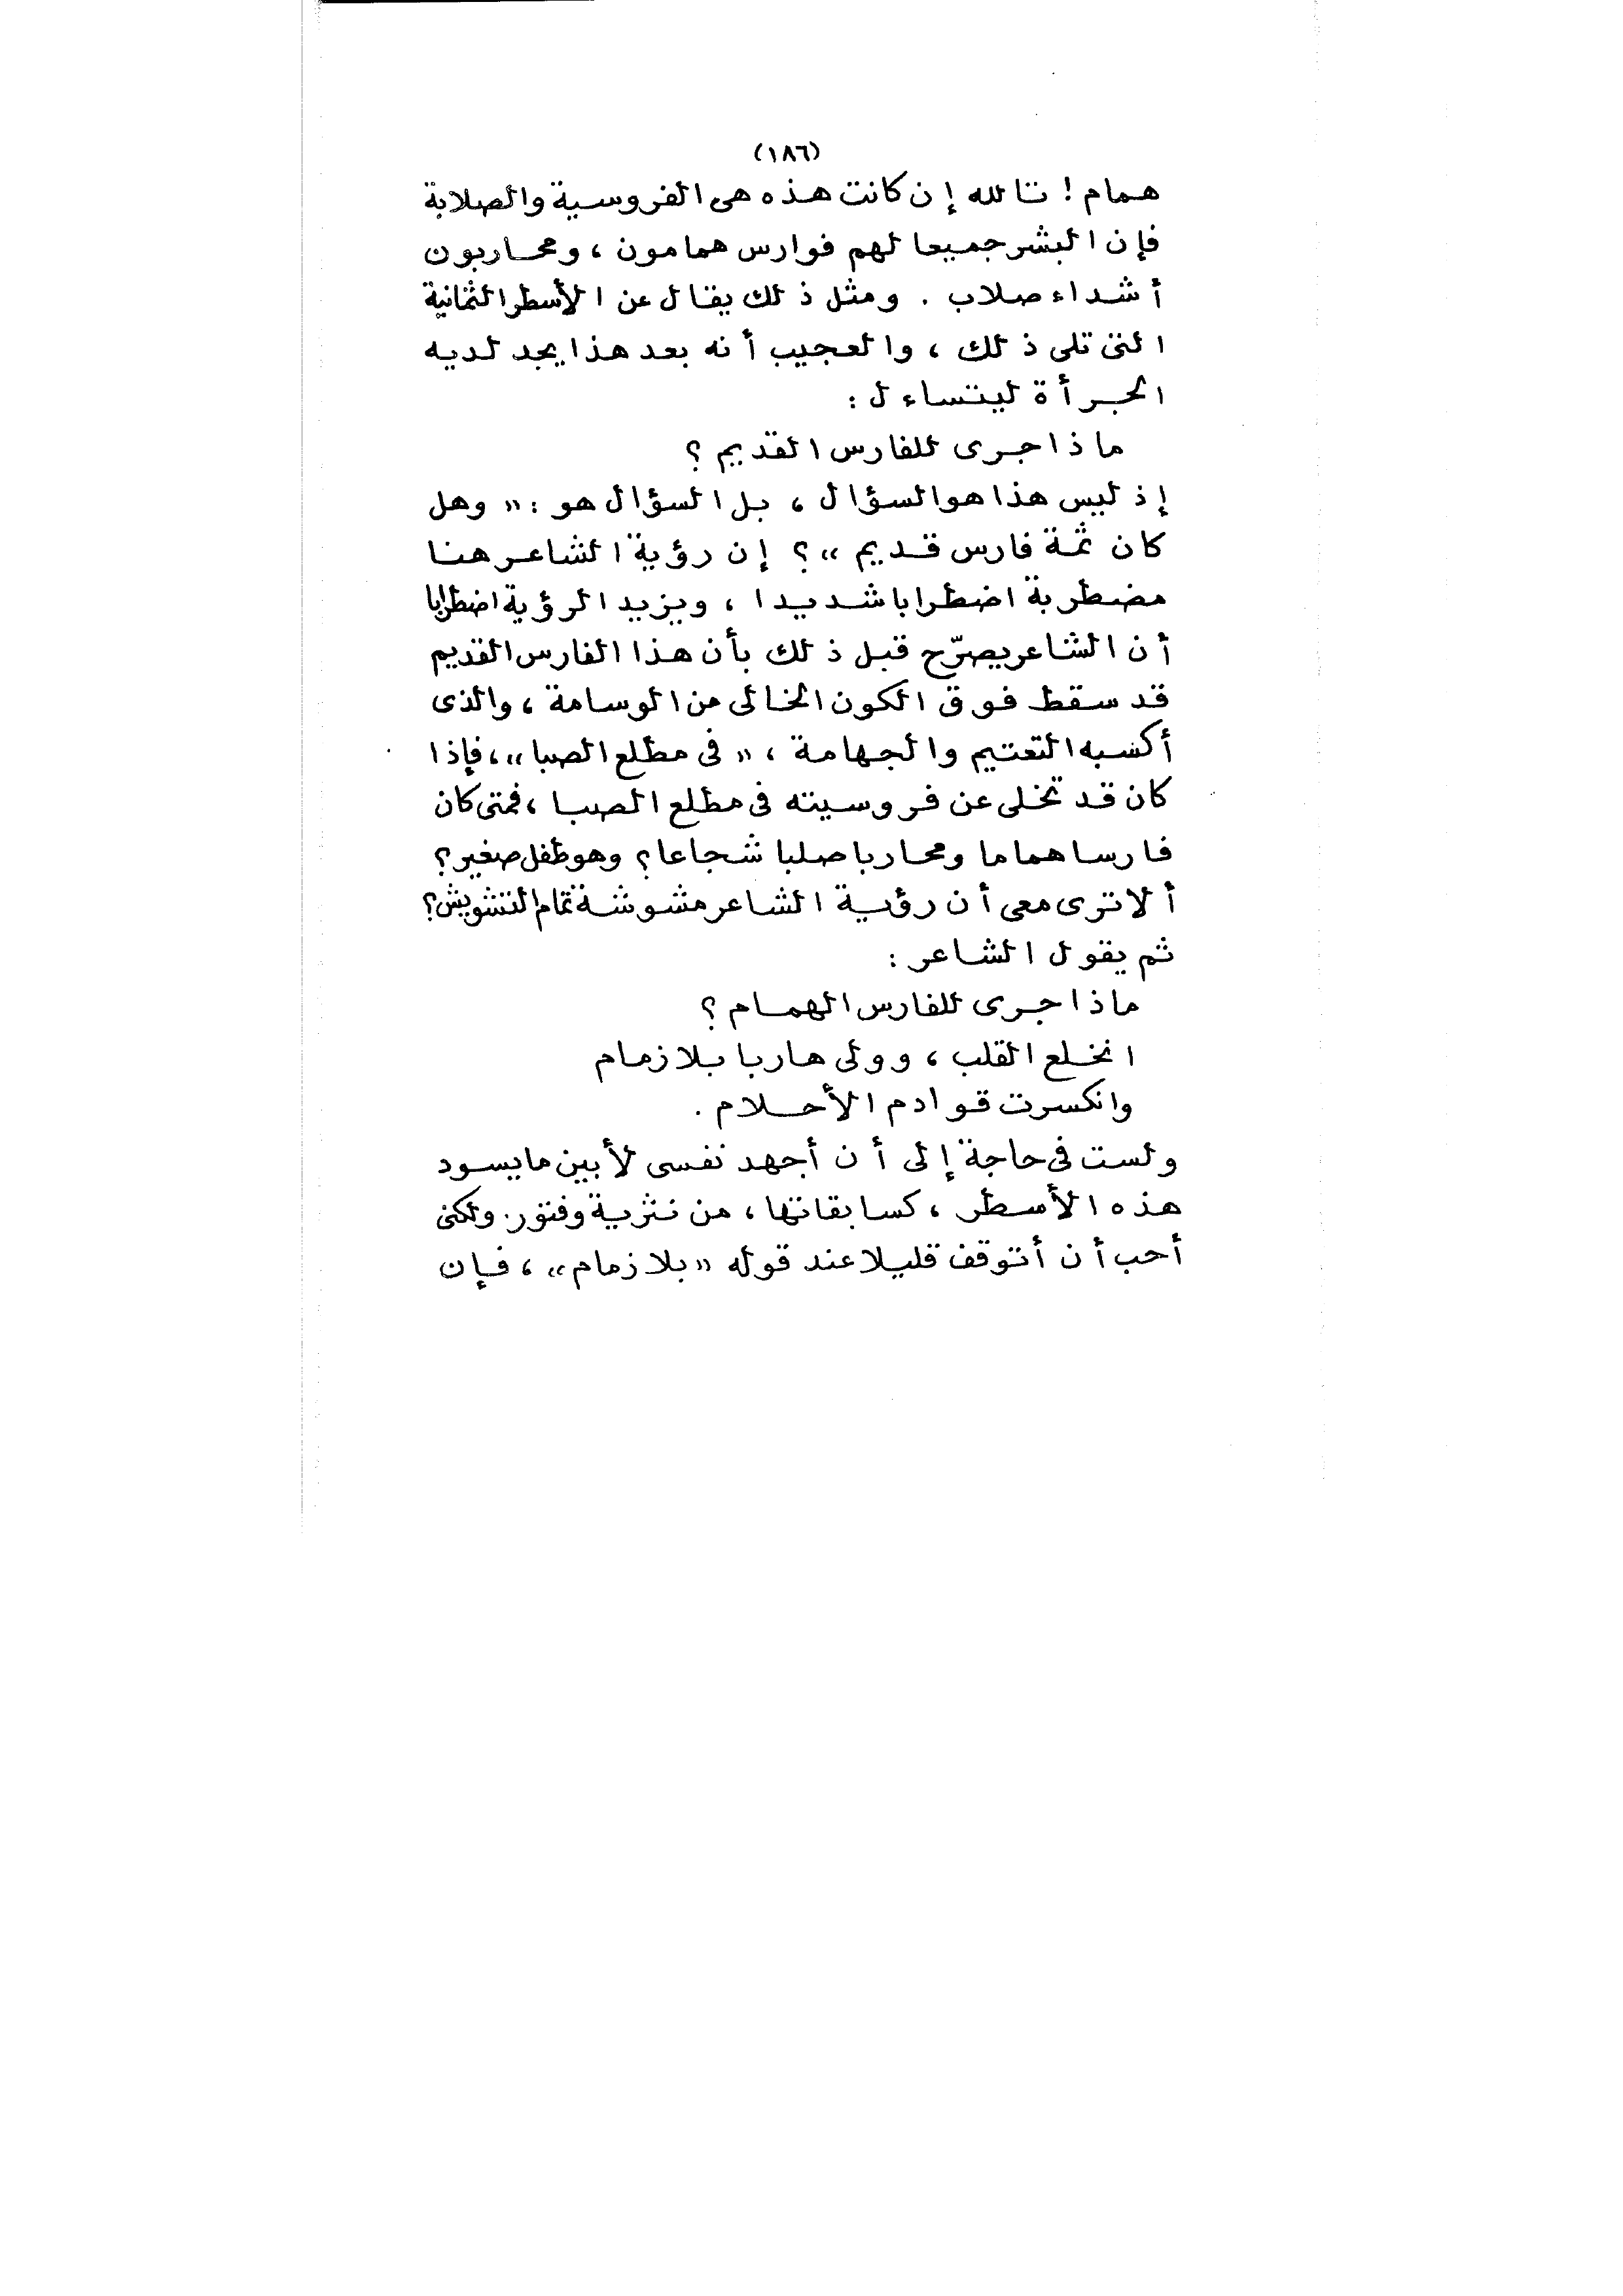 (١٨٦)
همام! تالله إن كانت هذه هى الفروسية والصلابة
فإن البشر جميعا لهم فوارس همامون، ومحاربون
أشداء صلاب. ومثل ذلك يقال عن الأسطر الثمانية
التى تلى ذلك، والعجيب أنه بعد هذا يجد لديه
الجرأة ليتساءل:
ماذا جرى للفارس القديم؟
إذ ليس هذا هو السؤال، بل السؤال هو: «وهل
كان ثمة فارس قديم»؟ إن رؤية الشاعر هنا
مضطربة اضطرابا شديدا، ويزيد الرؤية اضطرابا
أن الشاعر يصرّح قبل ذلك بأن هذا الفارس القديم
قد سقط فوق الكون الخالى من الوسامة، والذى
أكسبه التعتيم والجهامة، «فى مطلع الصبا»، فإذا
كان قد تخلى عن فروسيته فى مطلع الصبا، فمتى كان
فارسا هماما ومحاربا صلبا شجاعا؟ وهو طفل صغير؟
ألا ترى معى أن رؤية الشاعر مشوشة تمام التشويش؟
ثم يقول الشاعر:
ماذا جرى للفارس الهمام؟
انخلع القلب، وولى هاربا بلا زمام
وانكسرت قوادم الأحلام.
ولست فى حاجة إلى أن أجهد نفسى لأبين ما يسود
هذه الأسطر، كسابقاتها، من نثرية وفتور. ولكنى
أحب أن أتوقف قليلا عند قوله «بلا زمام»، فإن